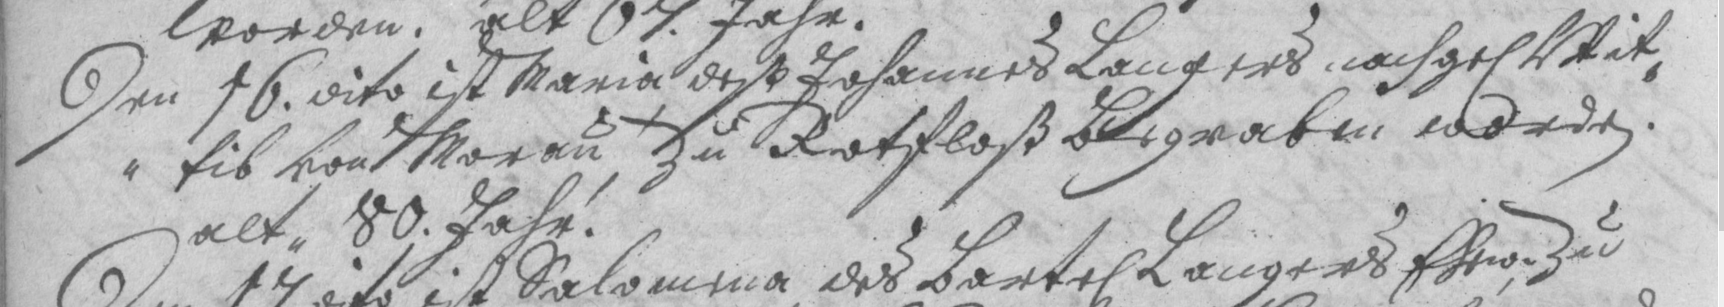 worden. alt 67. Jahr.
Den 16. dito ist Maria deß Johannes Langers nachgel Wit„
„tib von Morau zu Rotfloß begraben worden.
alt„ 80. Jahr.
Den 17 dito ist Salomena des Bartel Langers Ehew. zu